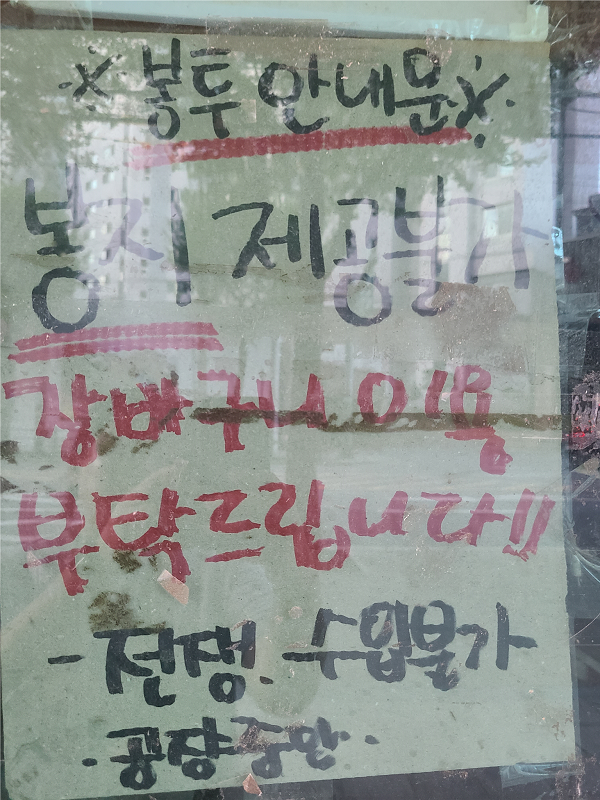 ※ 봉투 안내문 ※
봉지 제공불가
장바구니 이용
부탁드립니다!!
- 전쟁. 수입불가
· 공장중단 ·